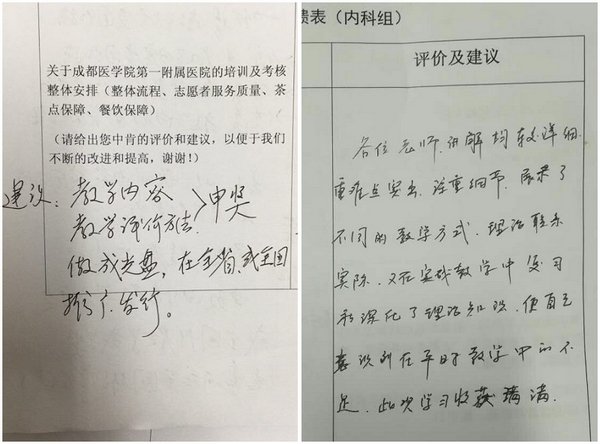 关于成都医学院第一附属医院的培训及考核
整体安排（整体流程、志愿者服务质量、茶
点保障、餐饮保障）
(请给出您中肯的评价和建议，以便于我们
不断的改进和提高，谢谢!）
建议：教学内容
教学评价方法 > 申奖
做成光盘，在全省或全国
推广发行。
馈表（内科组）
评价及建议
各位老师讲解均较详细
重难点突出、注重细节、展示了
不同的教学方式、理论联系
实际、又在实践教学中复习
和深化了理论知识、使自己
意识到在平时教学中的不
足、此次学习收获满满.